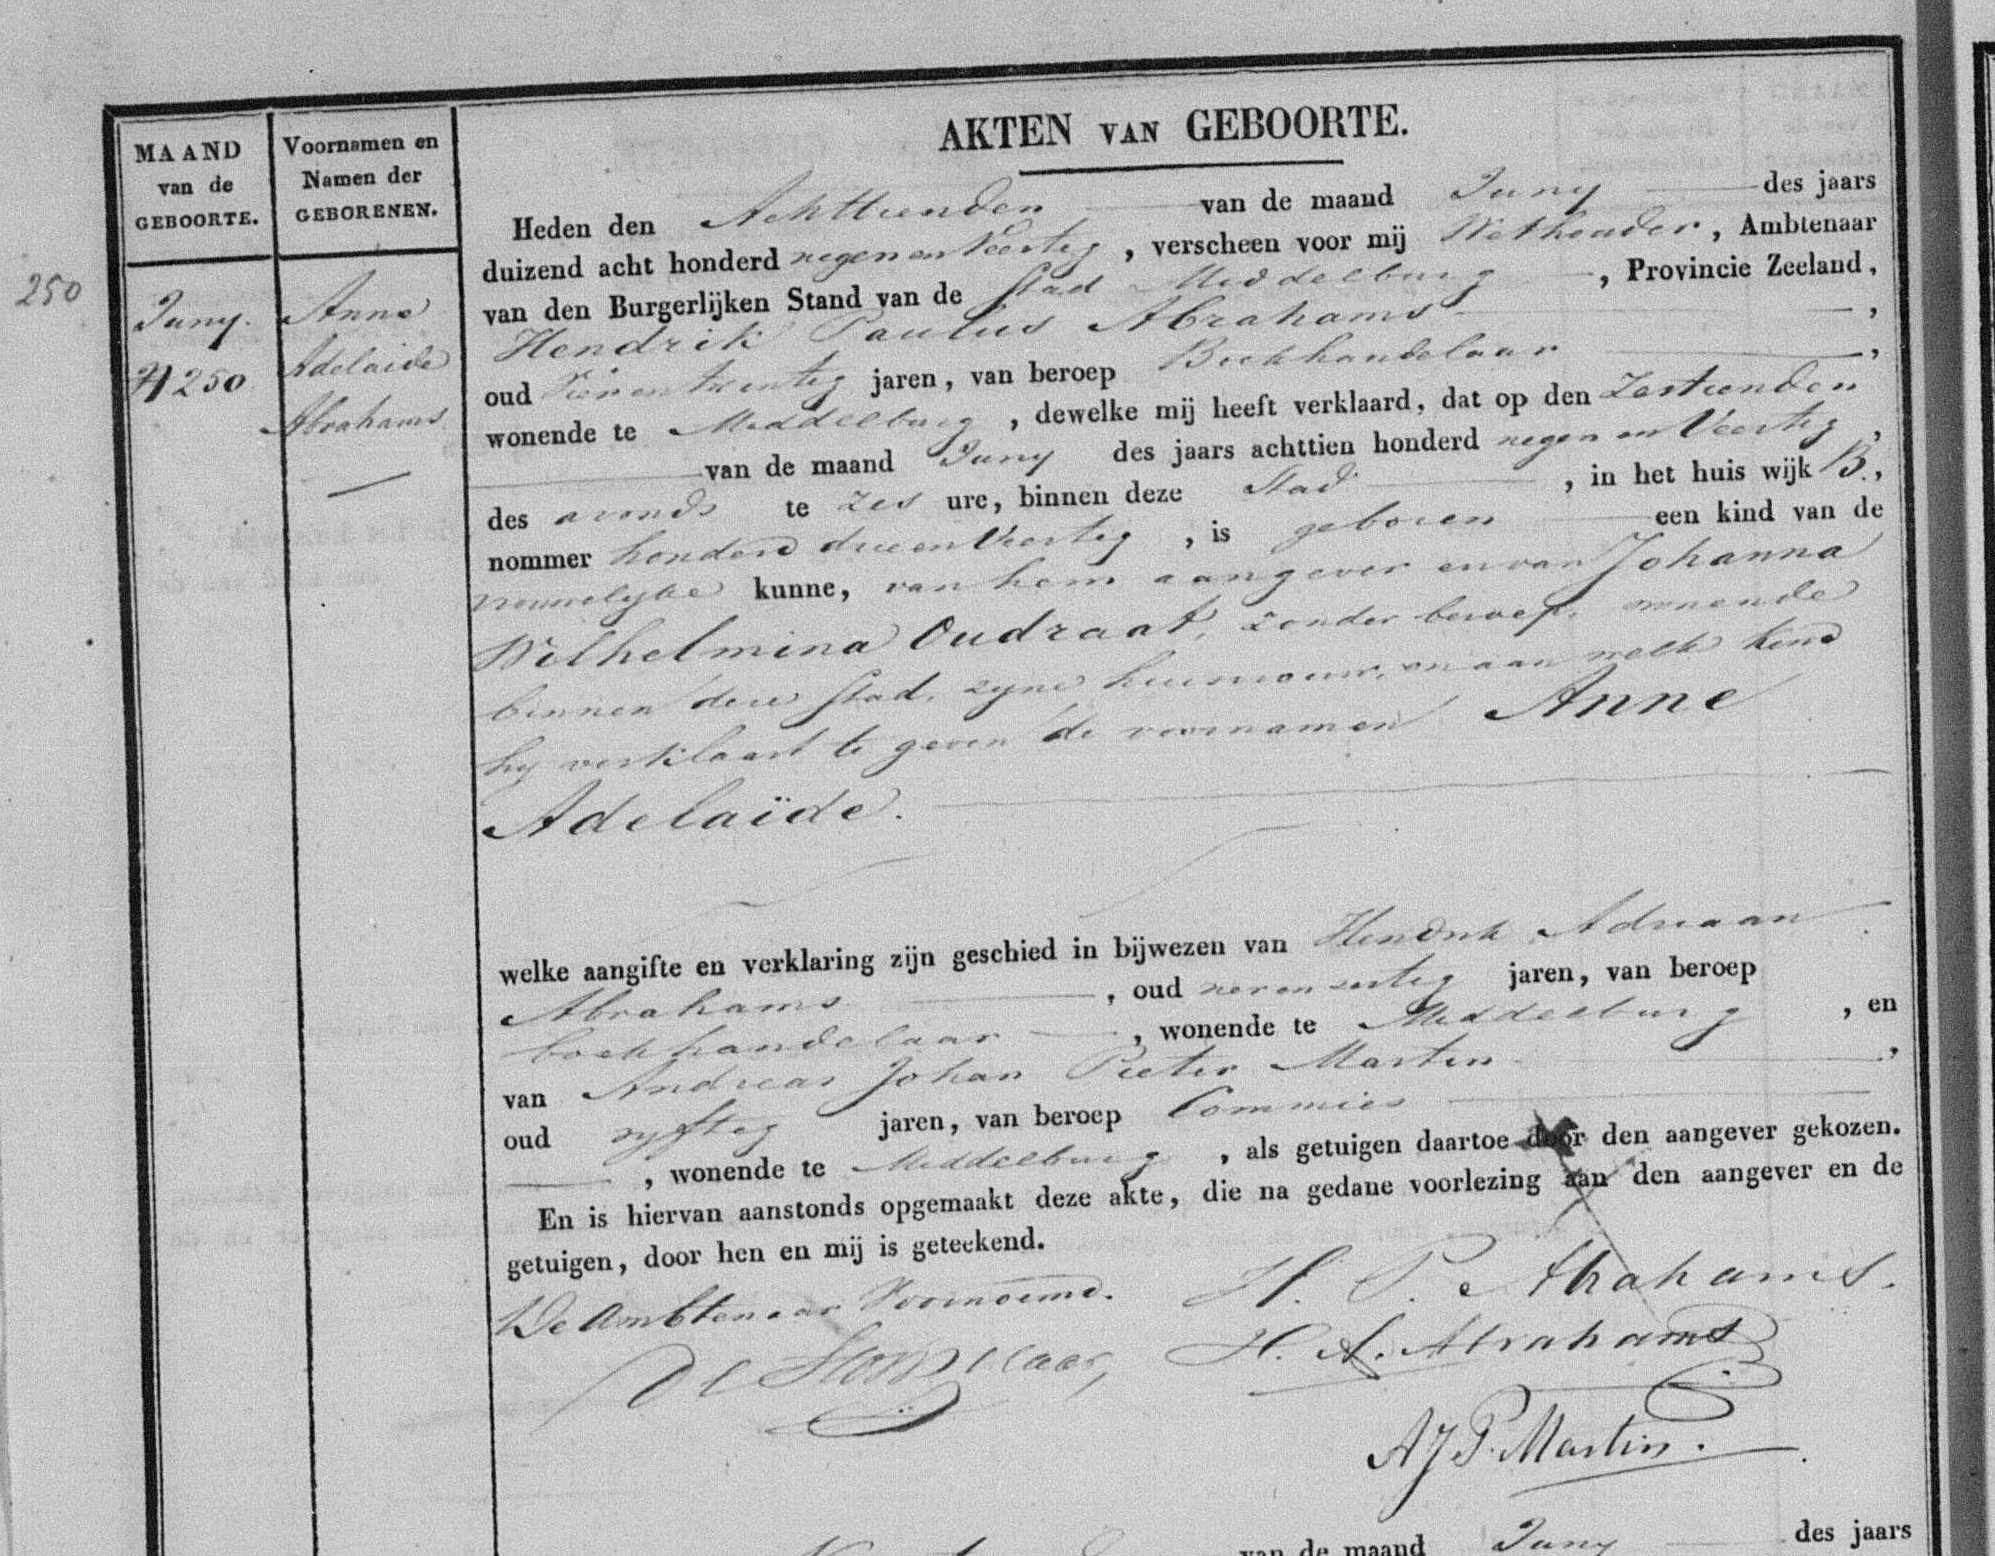 AKTEN VAN GEBOORTE.
MAAND
van de
GEBOORTE.
Voornamen en
Namen der
GEBORENEN.
250
Juny.
N 250
Anne
Adelaide
Abrahams
Heden den Achttienden van de maand Juny des jaars
duizend acht honderd negen en Veertig, verscheen voor mij Wethouder, Ambtenaar
van den Burgerlijken Stand van de Stad Middelburg, Provincie Zeeland,
Hendrik Paulus Abrahams,
oud Vier en twintig jaren, van beroep Boekhandelaar,
wonende te Middelburg, dewelke mij heeft verklaard, dat op den Zestienden
van de maand Juny des jaars achttien honderd negen en Veertig,
des avonds te zes ure, binnen deze Stad, in het huis wijk B.,
nommer honderd drie en Veertig, is geboren een kind van de
vrouwelyke kunne, van hem aangever en van Johanna
Wilhelmina Oudraat, zonder beroep, wonende
binnen deze Stad, zyne huisvrouw, en aan welk kind
hy verklaart te geven de voornamen Anne
Adelaïde.
welke aangifte en verklaring zijn geschied in bijwezen van Hendrik Adriaan
Abrahams, oud jaren, van beroep
boekhandelaar, wonende te Middelburg, en
van Andreas Johan Pieter Martin,
oud vyftig jaren, van beroep Commies
, wonende te Middelburg, als getuigen daartoe door den aangever gekozen.
En is hiervan aanstonds opgemaakt deze akte, die na gedane voorlezing aan den aangever en de
getuigen, door hen en mij is geteekend.
De Ambtenaar Voornoemd.
H. P. Abrahams.
H. A. Abrahams
A J P. Martin.
van de maand Juny des jaars